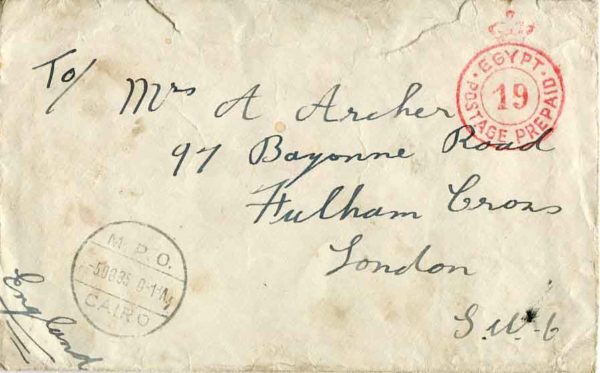 EGYPT
19
POSTAGE PREPAID
To/ Mrs A Archer
97 Bayonne Road
Fulham Cross
London
S.W.6
M.P.O.
CAIRO
England